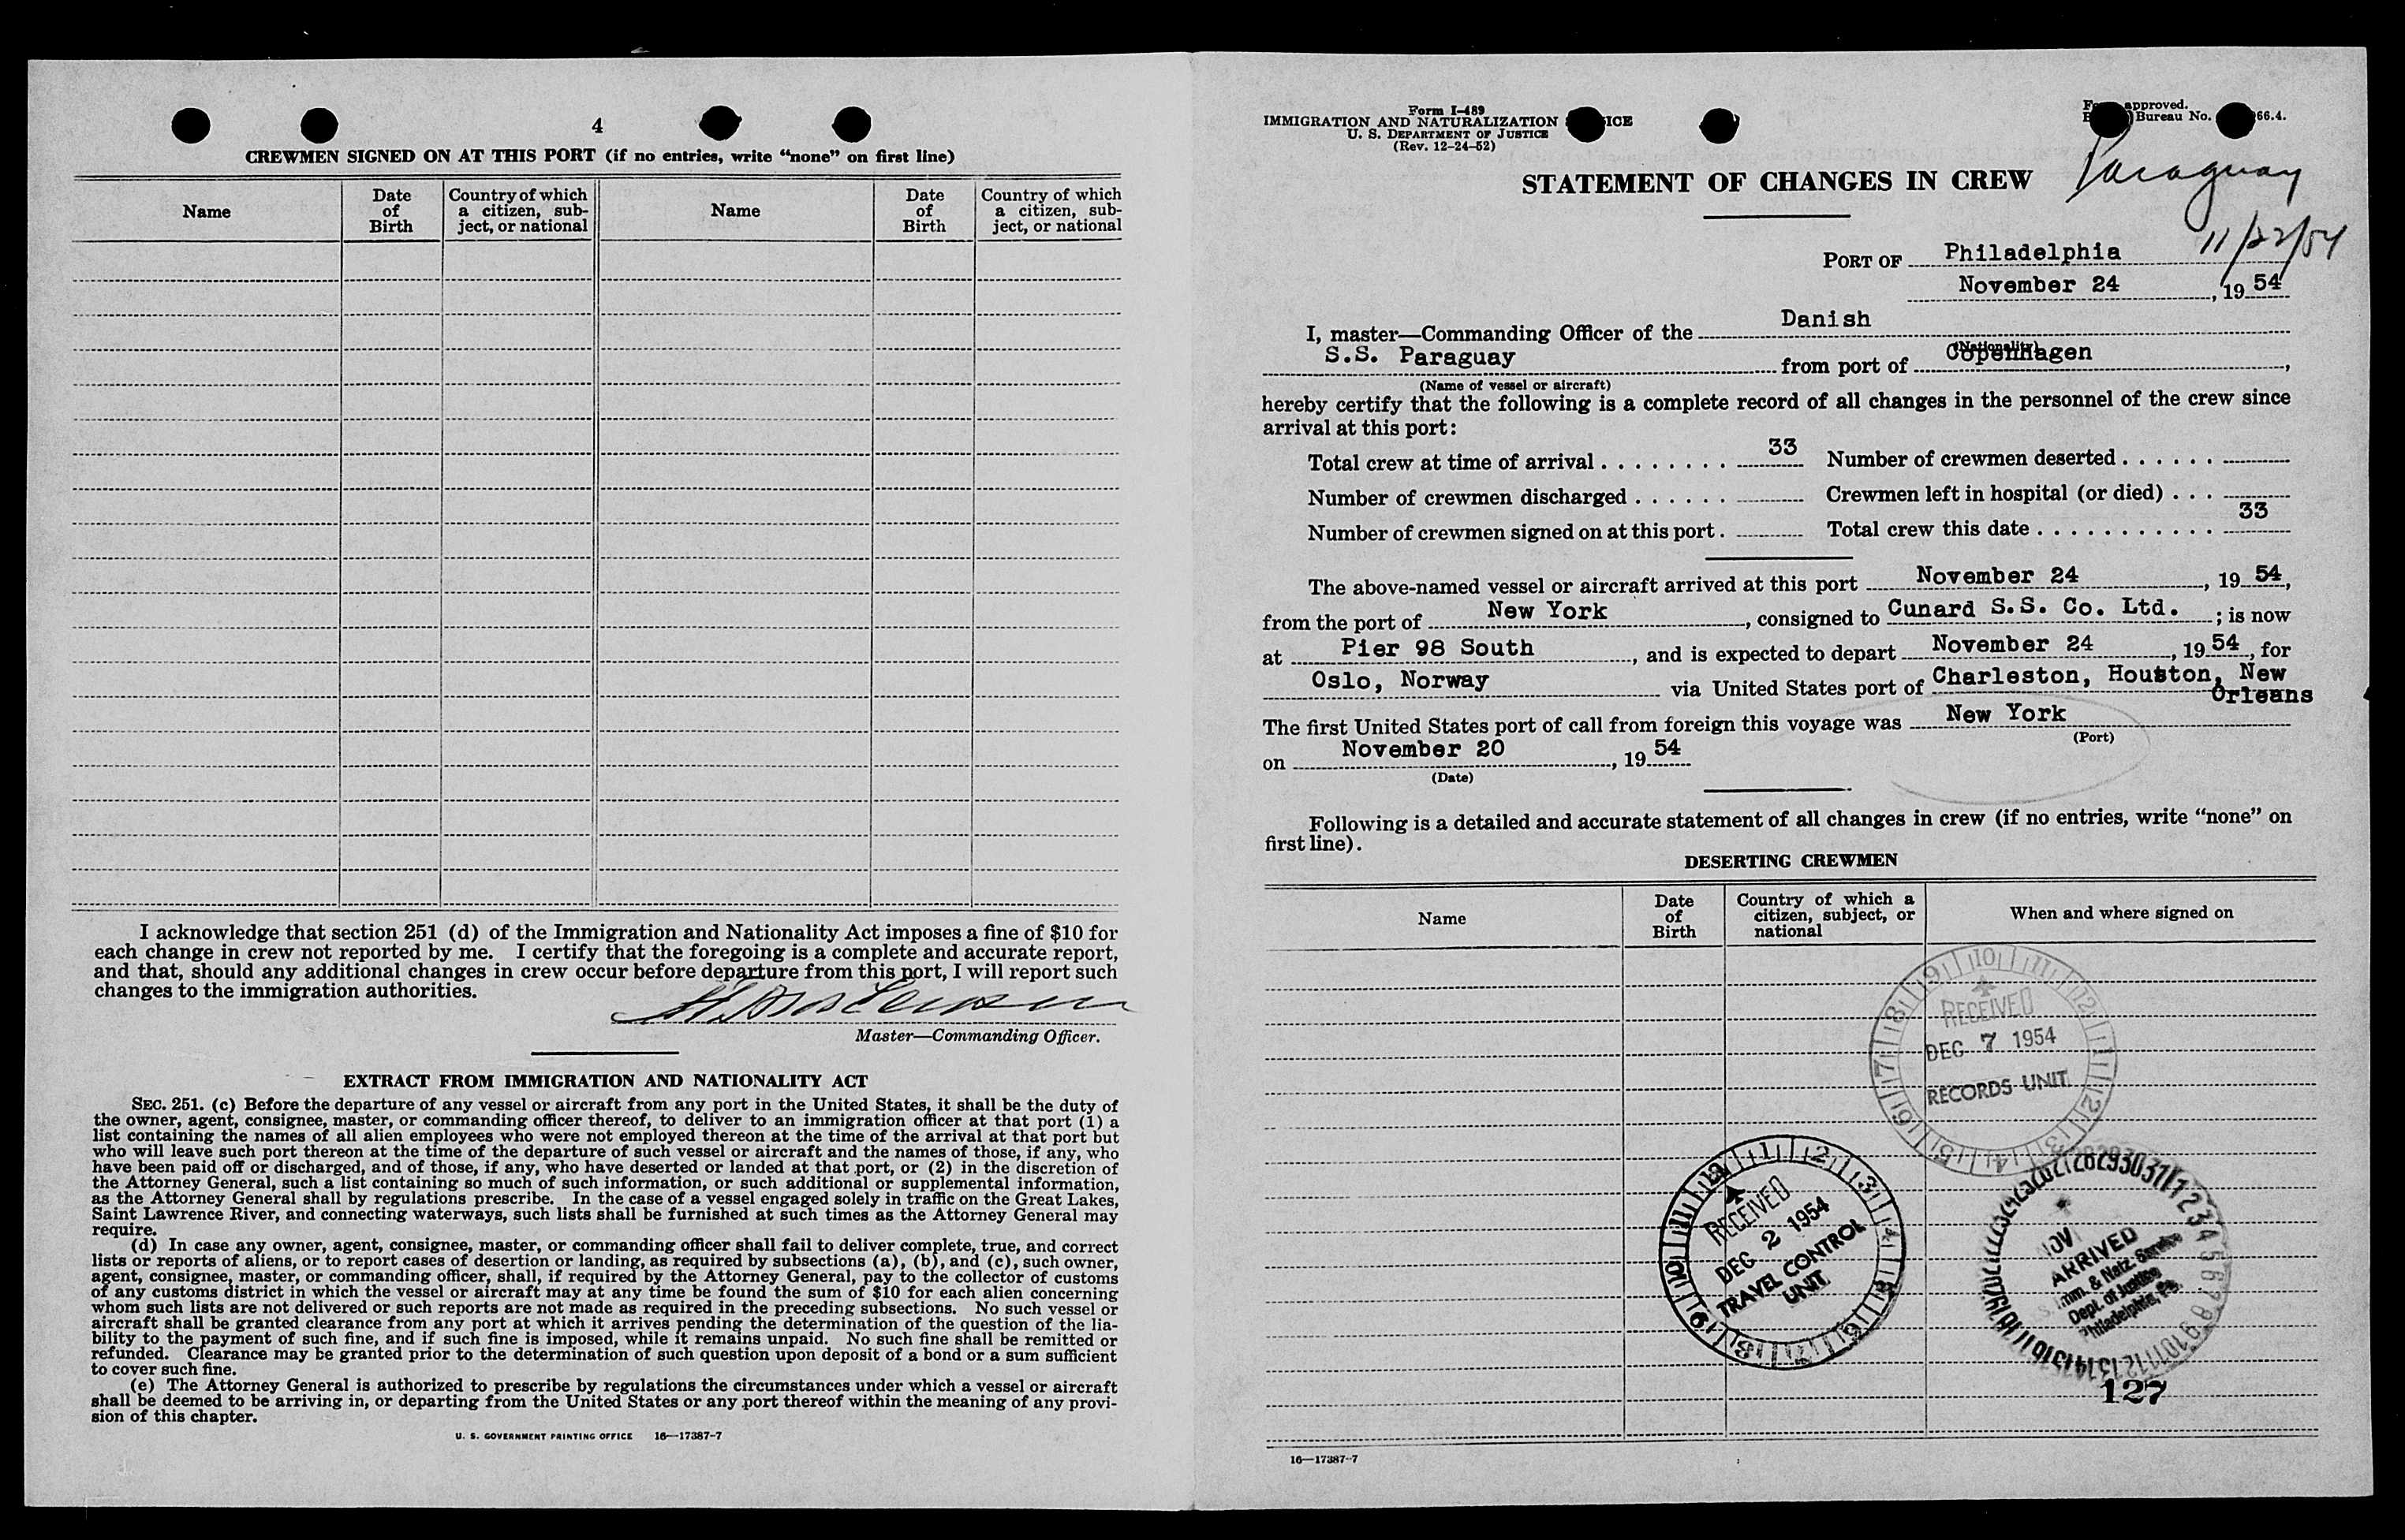 4
CREWMEN SIGNED ON AT THIS PORT (if no entries, write “none” on first line)
Name
Date of Birth
Country of which a citizen, subject, or national
Name
Date of Birth
Country of which a citizen, subject, or national
I acknowledge that section 251 (d) of the Immigration and Nationality Act imposes a fine of $10 for
each change in crew not reported by me. I certify that the foregoing is a complete and accurate report,
and that, should any additional changes in crew occur before departure from this port, I will report such
changes to the immigration authorities.
Master—Commanding Officer.
EXTRACT FROM IMMIGRATION AND NATIONALITY ACT
SEC. 251. (c) Before the departure of any vessel or aircraft from any port in the United States, it shall be the duty of
the owner, agent, consignee, master, or commanding officer thereof, to deliver to an immigration officer at that port (1) a
list containing the names of all alien employees who were not employed thereon at the time of the arrival at that port but
who will leave such port thereon at the time of the departure of such vessel or aircraft and the names of those, if any, who
have been paid off or discharged, and of those, if any, who have deserted or landed at that port, or (2) in the discretion of
the Attorney General, such a list containing so much of such information, or such additional or supplemental information,
as the Attorney General shall by regulations prescribe. In the case of a vessel engaged solely in traffic on the Great Lakes,
Saint Lawrence River, and connecting waterways, such lists shall be furnished at such times as the Attorney General may
require.
(d) In case any owner, agent, consignee, master, or commanding officer shall fail to deliver complete, true, and correct
lists or reports of aliens, or to report cases of desertion or landing, as required by subsections (a), (b), and (c), such owner,
agent, consignee, master, or commanding officer, shall, if required by the Attorney General, pay to the collector of customs
of any customs district in which the vessel or aircraft may at any time be found the sum of $10 for each alien concerning
whom such lists are not delivered or such reports are not made as required in the preceding subsections. No such vessel or
aircraft shall be granted clearance from any port at which it arrives pending the determination of the question of the lia-
bility to the payment of such fine, and if such fine is imposed, while it remains unpaid. No such fine shall be remitted or
refunded. Clearance may be granted prior to the determination of such question upon deposit of a bond or a sum sufficient
to cover such fine.
(e) The Attorney General is authorized to prescribe by regulations the circumstances under which a vessel or aircraft
shall be deemed to be arriving in, or departing from the United States or any port thereof within the meaning of any provi-
sion of this chapter.
U. S. GOVERNMENT PRINTING OFFICE 16—17387-7
Form I-489
IMMIGRATION AND NATURALIZATION ICE
U. S. DEPARTMENT OF JUSTICE
(Rev. 12-24-52)
approved.
Bureau No. 66.4.
Paraguay
11/22/54
STATEMENT OF CHANGES IN CREW
PORT OF Philadelphia
November 24, 1954
I, master—Commanding Officer of the Danish
(Nationality)
S.S. Paraguay from port of Copenhagen,
(Name of vessel or aircraft)
hereby certify that the following is a complete record of all changes in the personnel of the crew since
arrival at this port:
Total crew at time of arrival 33 Number of crewmen deserted
Number of crewmen discharged Crewmen left in hospital (or died)
Number of crewmen signed on at this port. Total crew this date 33
The above-named vessel or aircraft arrived at this port November 24, 1954,
from the port of New York, consigned to Cunard S.S. Co. Ltd.; is now
at Pier 98 South, and is expected to depart November 24, 1954, for
Oslo, Norway via United States port of Charleston, Houston, New
Orleans
The first United States port of call from foreign this voyage was New York
(Port)
on November 20, 1954
(Date)
Following is a detailed and accurate statement of all changes in crew (if no entries, write “none” on
first line).
DESERTING CREWMEN
Name
Date of Birth
Country of which a citizen, subject, or national
When and where signed on
RECEIVED
DEC 7 1954
RECORDS UNIT
RECEIVED
DEC 2 1954
TRAVEL CONTROL
UNIT
ARRIVED
Imm. & Natz. Service
Dept. of Justice
Philadelphia, Pa.
127
16—17387-7